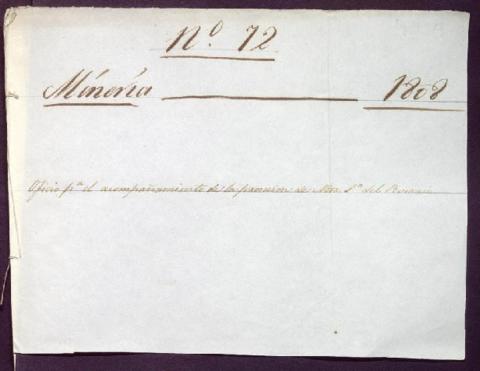 Nº. 72
Minería 1808
Oficio pª el acompañamiento de la procesion de Ntra Sª del Rosario